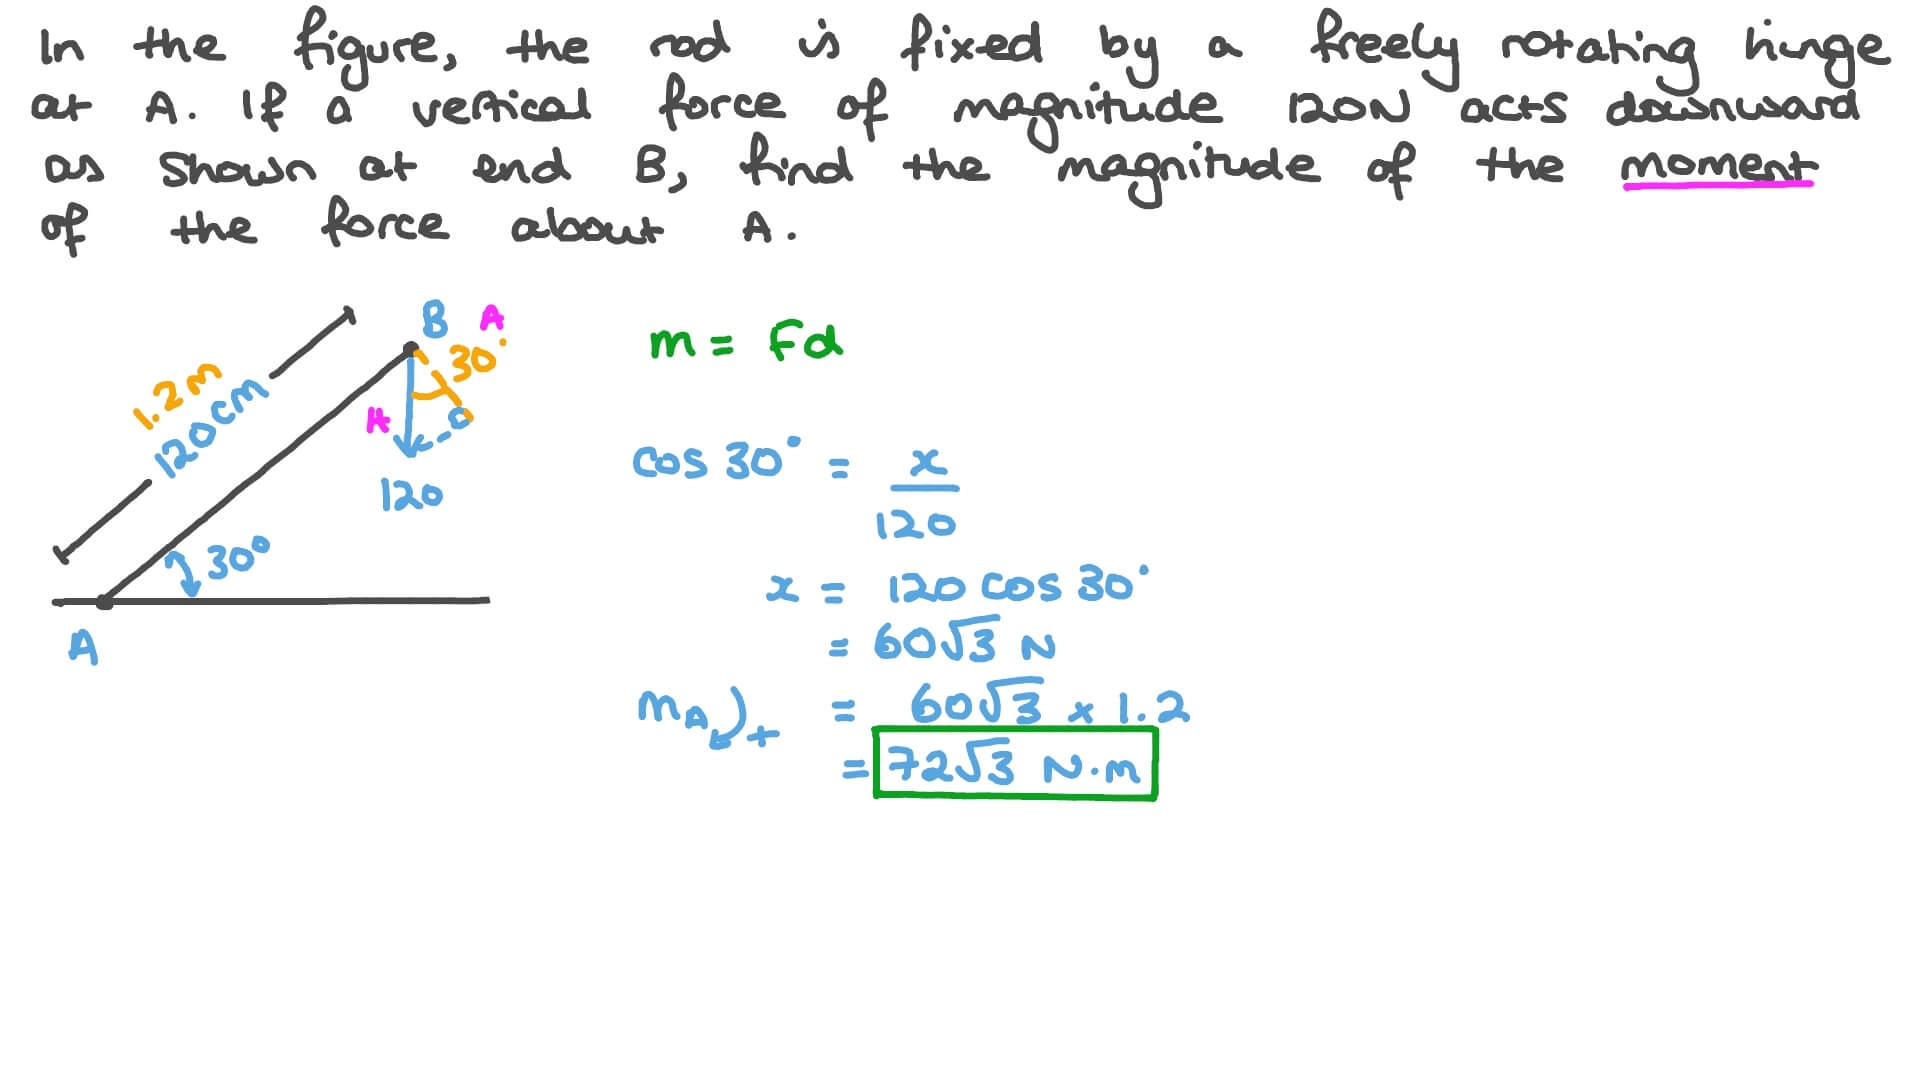 In the figure, the rod is fixed by a freely rotating hinge
at A. If a vertical force of magnitude 120N acts downward
as shown at end B, find the magnitude of the moment
of the force about A.
B A
30°
1.2m
120cm
H
120
30°
A
m = Fd
cos 30° = x/120
x = 120 cos 30°
= 60√3 N
mA + = 60√3 x 1.2
= 72√3 N·m